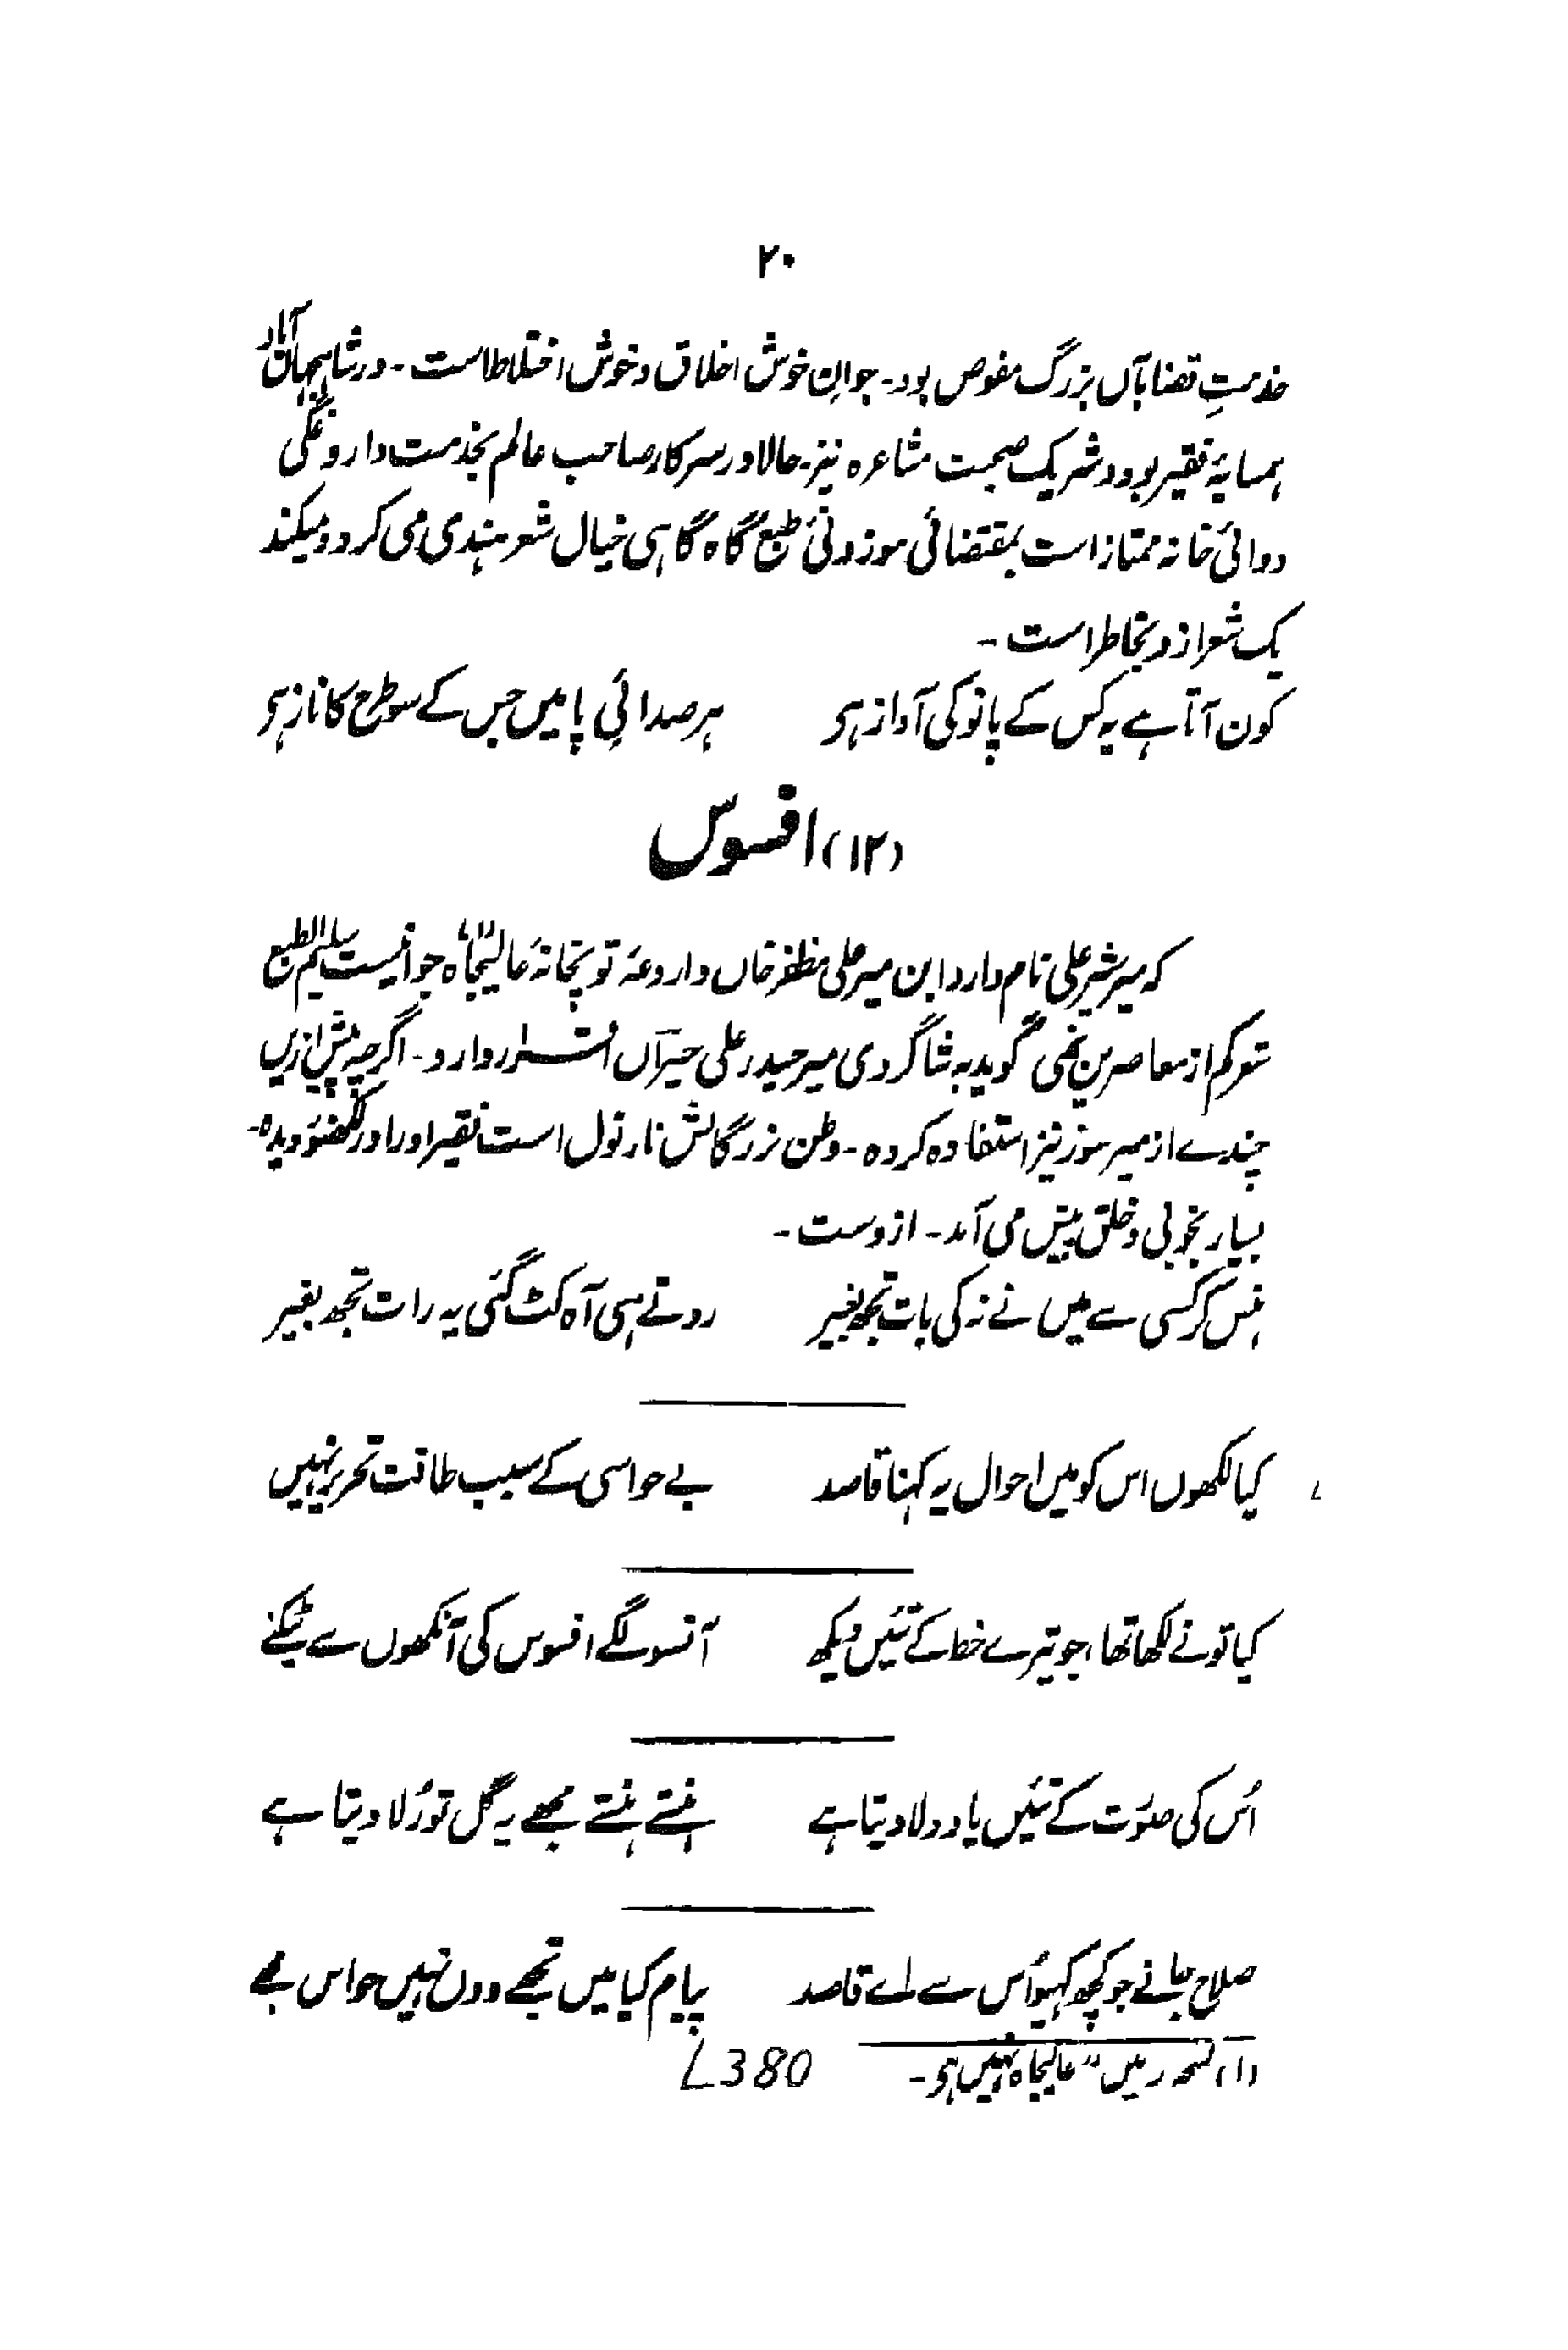 ۲۰
خدمتِ قضا بآں بزرگ مفوص بود۔ جوانِ خوش اخلاق و خوش اختلاط است۔ در شاہجہاں آباد
ہمسایۂ فقیر بود و شریک صحبت مشاعرہ نیز۔ حالا در سرکار صاحب عالم بخدمت داروغگی
دوائی خانہ ممتاز است بمقتضائی موزونیٔ طبع گاہ گاہی خیال شعر ہندی می کرد و میکند
یک شعر ازو بخاطر است۔
کون آتا ہے یہ کس کے پانو کی آواز ہی ہر صدائیِ پا میں جس کے سو طرح کا ناز ہی
(۱۲) افسوس
کہ میر شیر علی نام دارد ابن میر علی مظفر خاں داروغۂ توپخانۂ عالیجاہ(۱) جوانیست سلیم الطبع
شعر کم از معاصرین نمی گوید بہ شاگردی میر حیدر علی حیراں استوار دارد۔ اگرچہ پیش ازیں
چندے از میر سوز نیز استفادہ کردہ۔ وطن بزرگانش نارنول است فقیر او را در لکھنؤ دیدہ۔
بسیار بخوبی و خلق پیش می آمد۔ ازوست۔
ہنس کر کسی سے میں نے نہ کی بات تجھ بغیر روتے ہی آہ کٹ گئی یہ رات تجھ بغیر
کیا لکھوں اس کو میں احوال یہ کہنا قاصد بے حواسی کے سبب طاقت تحریر نہیں
کیا تونے لکھا تھا، جو ترے خط کے تئیں دیکھ آنسو لگے افسوس کی آنکھوں سے ٹپکنے
اُس کی صورت کے تئیں یاد دلا دیتا ہے ہنستے ہنستے مجھے یہ گل تو رُلا دیتا ہے
صلاح جانے جو کچھ کہیو اُس سے اے قاصد پیام کیا میں تجھے دوں نہیں حواس مجھے
(۱) نسخہ ر میں "عالیجاہ نہیں ہی۔
L380